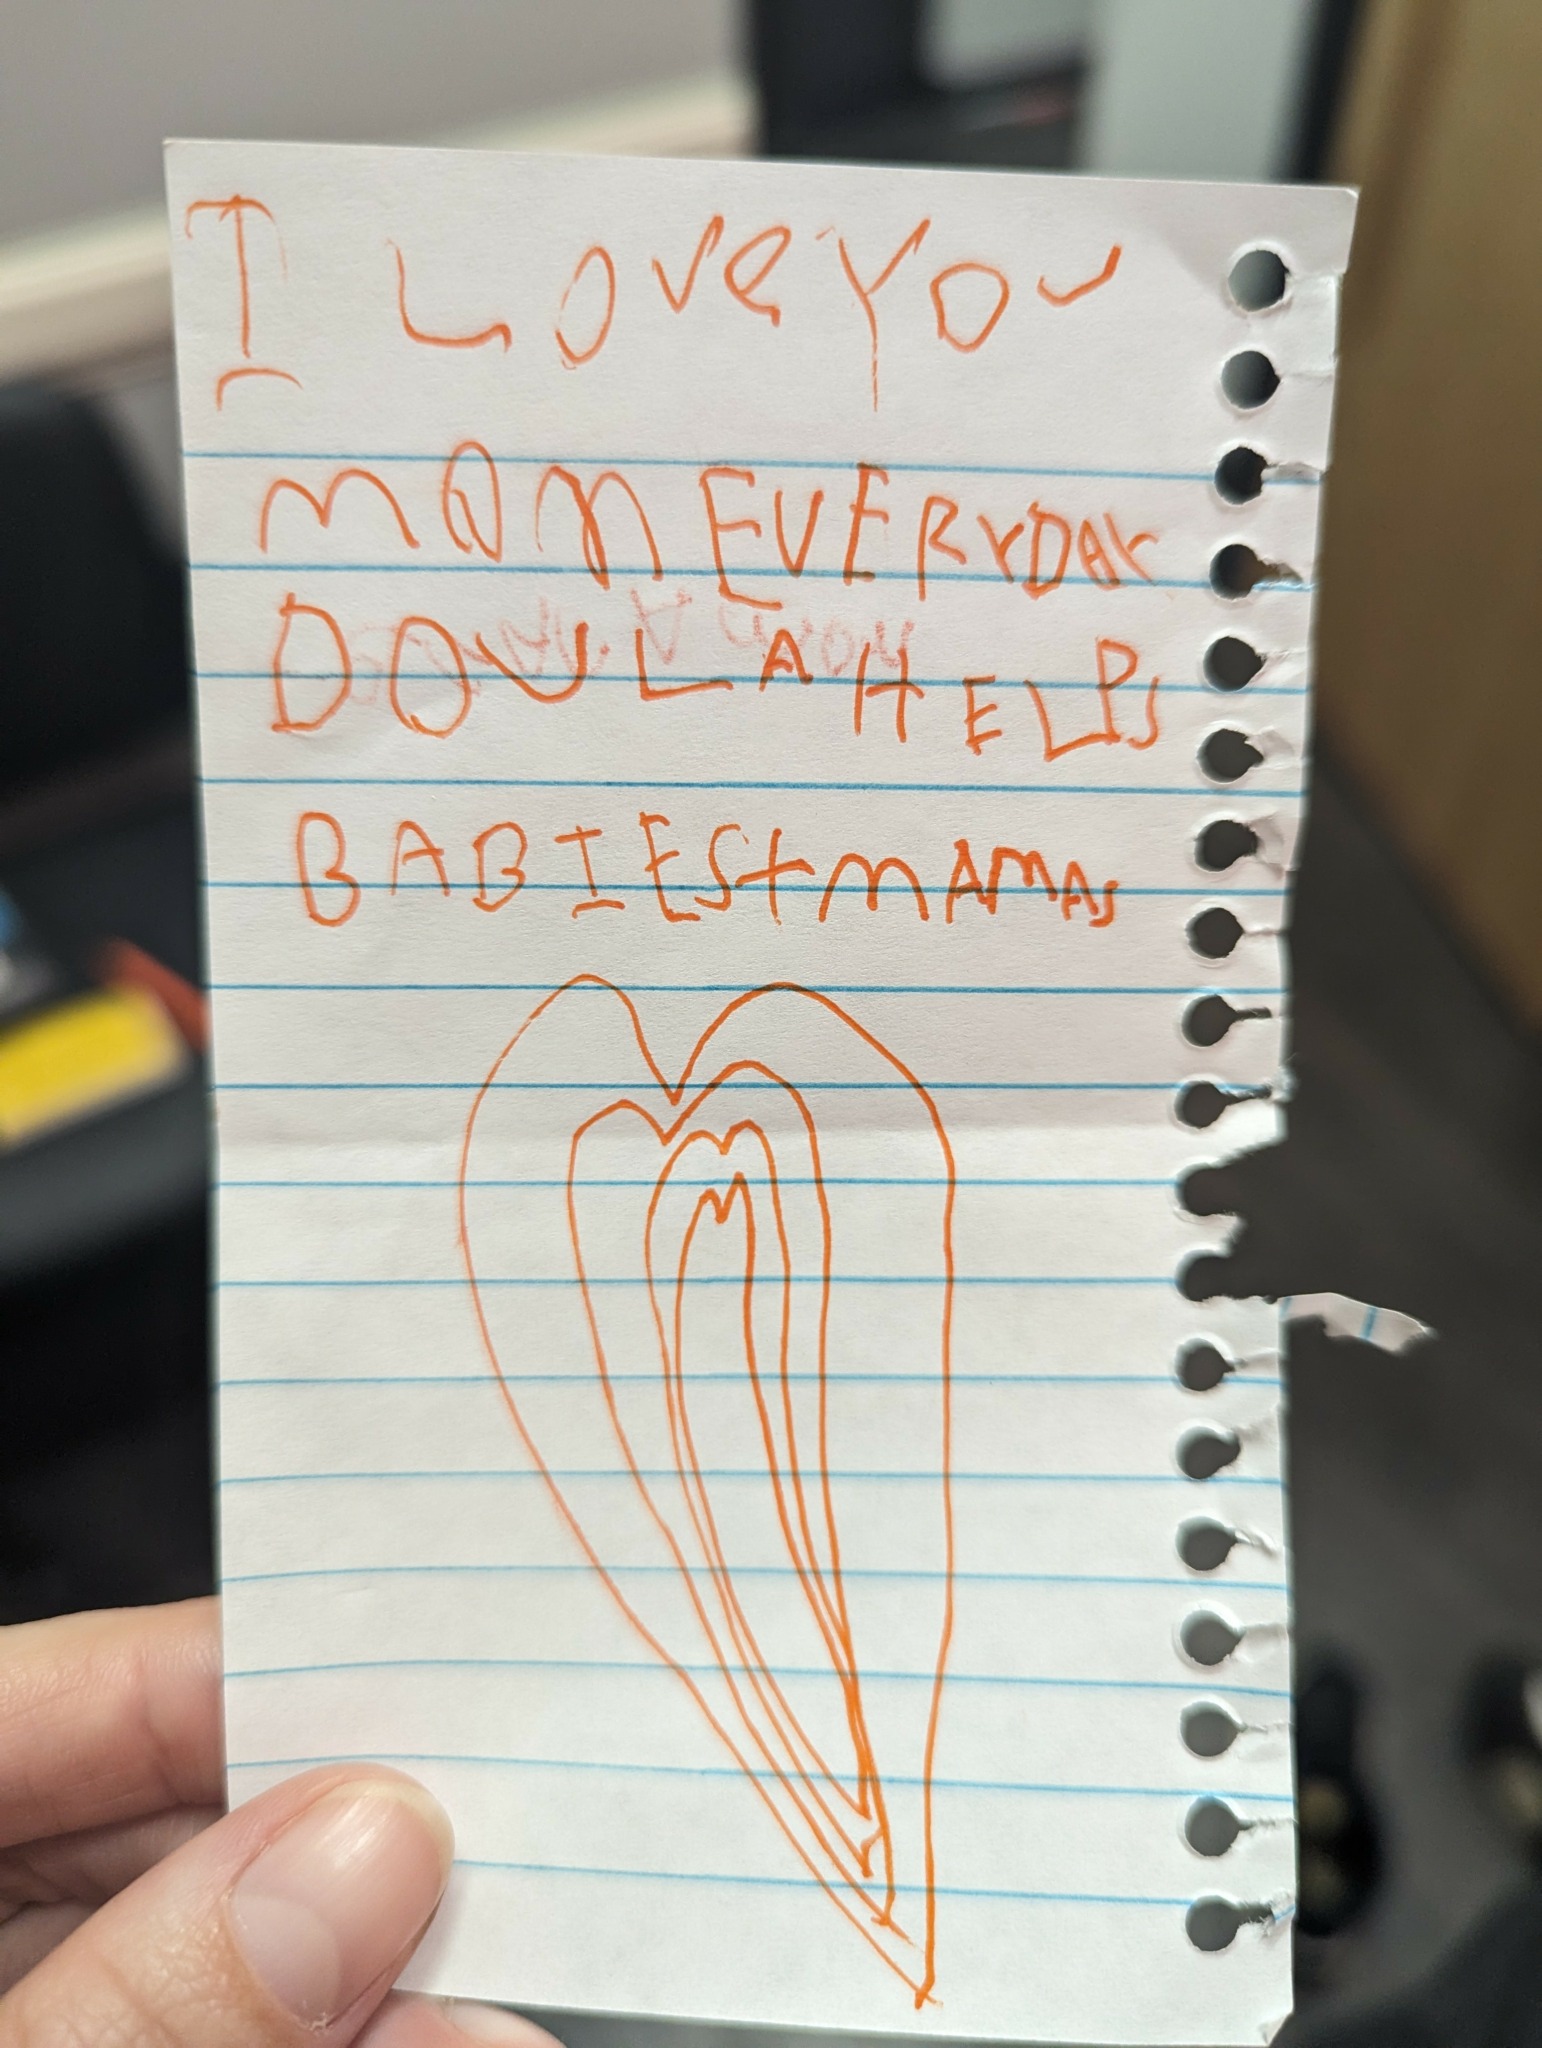 I LOVe YOU
MOM EVERYDAY
DOULA HELPS
BABIES + MAMAS